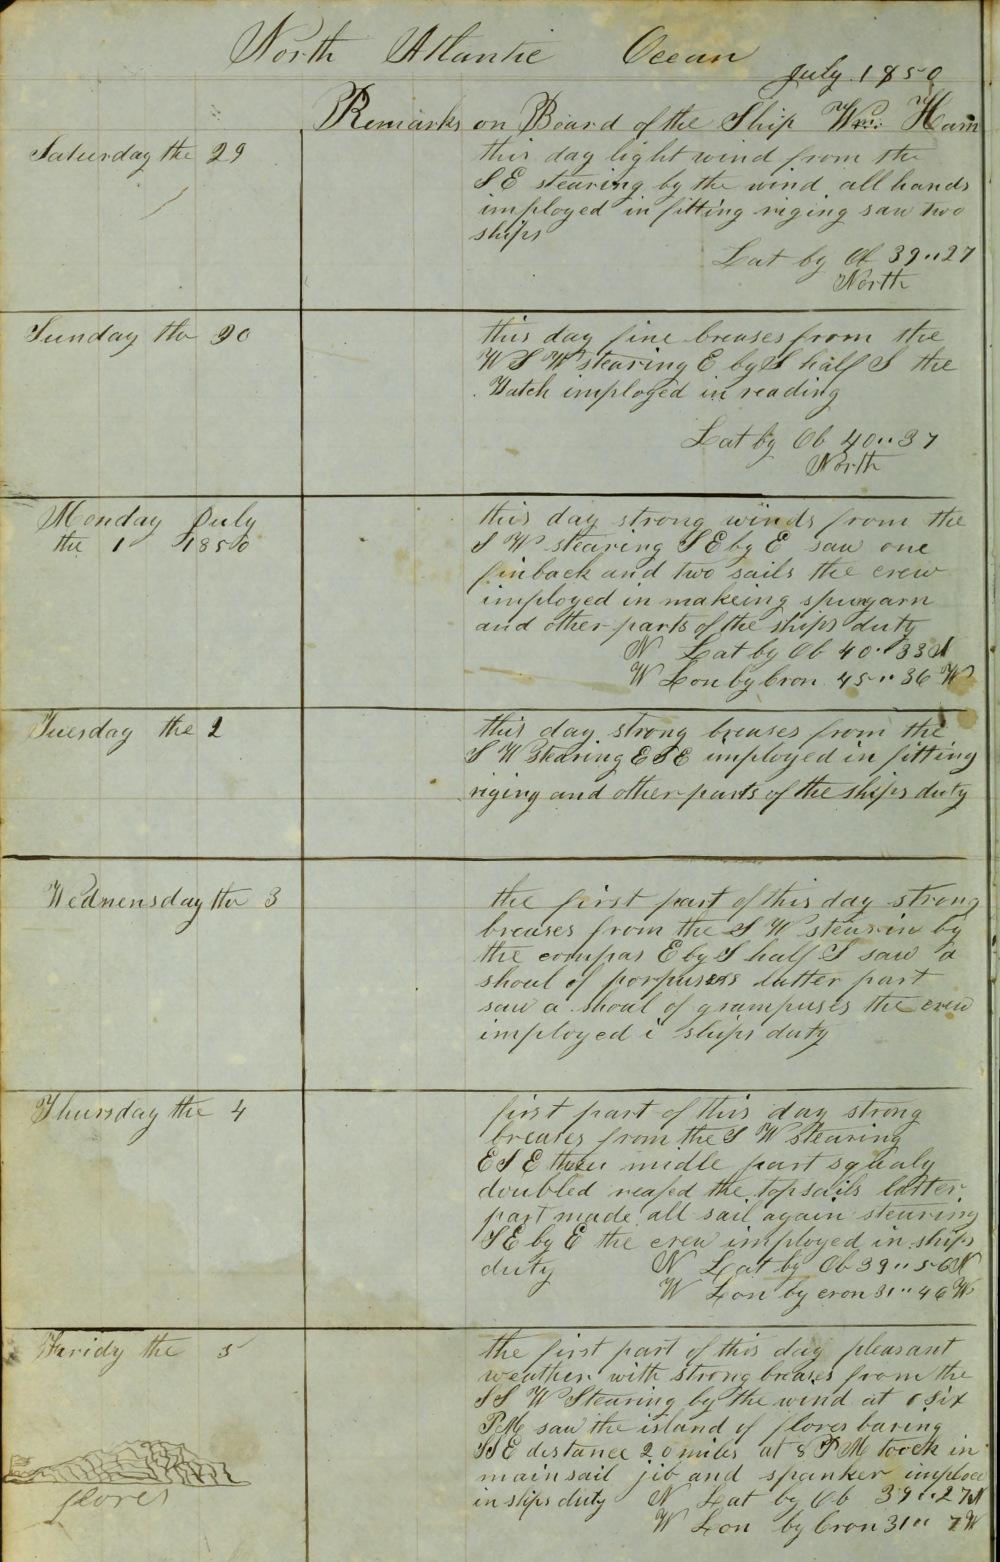 North Atlantic Ocean
July 1850
Remarks on Board of the Ship Wm Ham
Saturday the 29
this day light wind from the
S E stearing by the wind all hands
imployed in fitting riging saw two
ships
Lat by Ob 39"27
North
Sunday the 30
this day fine breases from the
W S W stearing E by S half S the
Watch imployed in reading
Lat by Ob 40"37
North
Monday July
the 1 1850
this day strong winds from the
S W stearing S E by E saw one
finback and two sails the crew
imployed in makeing spunyarn
and other parts of the ships duty
N Lat by Ob 40"33 N
W Lon by Cron 45"36 W
Tuesday the 2
this day strong breases from the
S W stearing E S E imployed in fitting
riging and other parts of the ships duty
Wednensday the 3
the first part of this day strong
breases from the S W stearin by
the compas E by S half S saw a
shoal of porpuses latter part
saw a shoal of grampuses the crew
imployed i ships duty
Thursday the 4
first part of this day strong
breases from the S W stearing
E S E midle part squaly
doubled reafed the topsails latter
part made all sail again stearing
S E by E the crew imployed in ships
duty N Lat by Ob 39"56 N
W Lon by cron 31"46 W
Faridy the 5
the first part of this day pleasant
weather with strong breases from the
S S W Stearing by the wind at six
P M saw the island of flores baring
S S E distance 20 miles at 8 P M toock in
mainsail jib and spanker imploed
in ships duty N Lat by Ob 39"27 N
W Lon by Cron 31" 7 W
flores